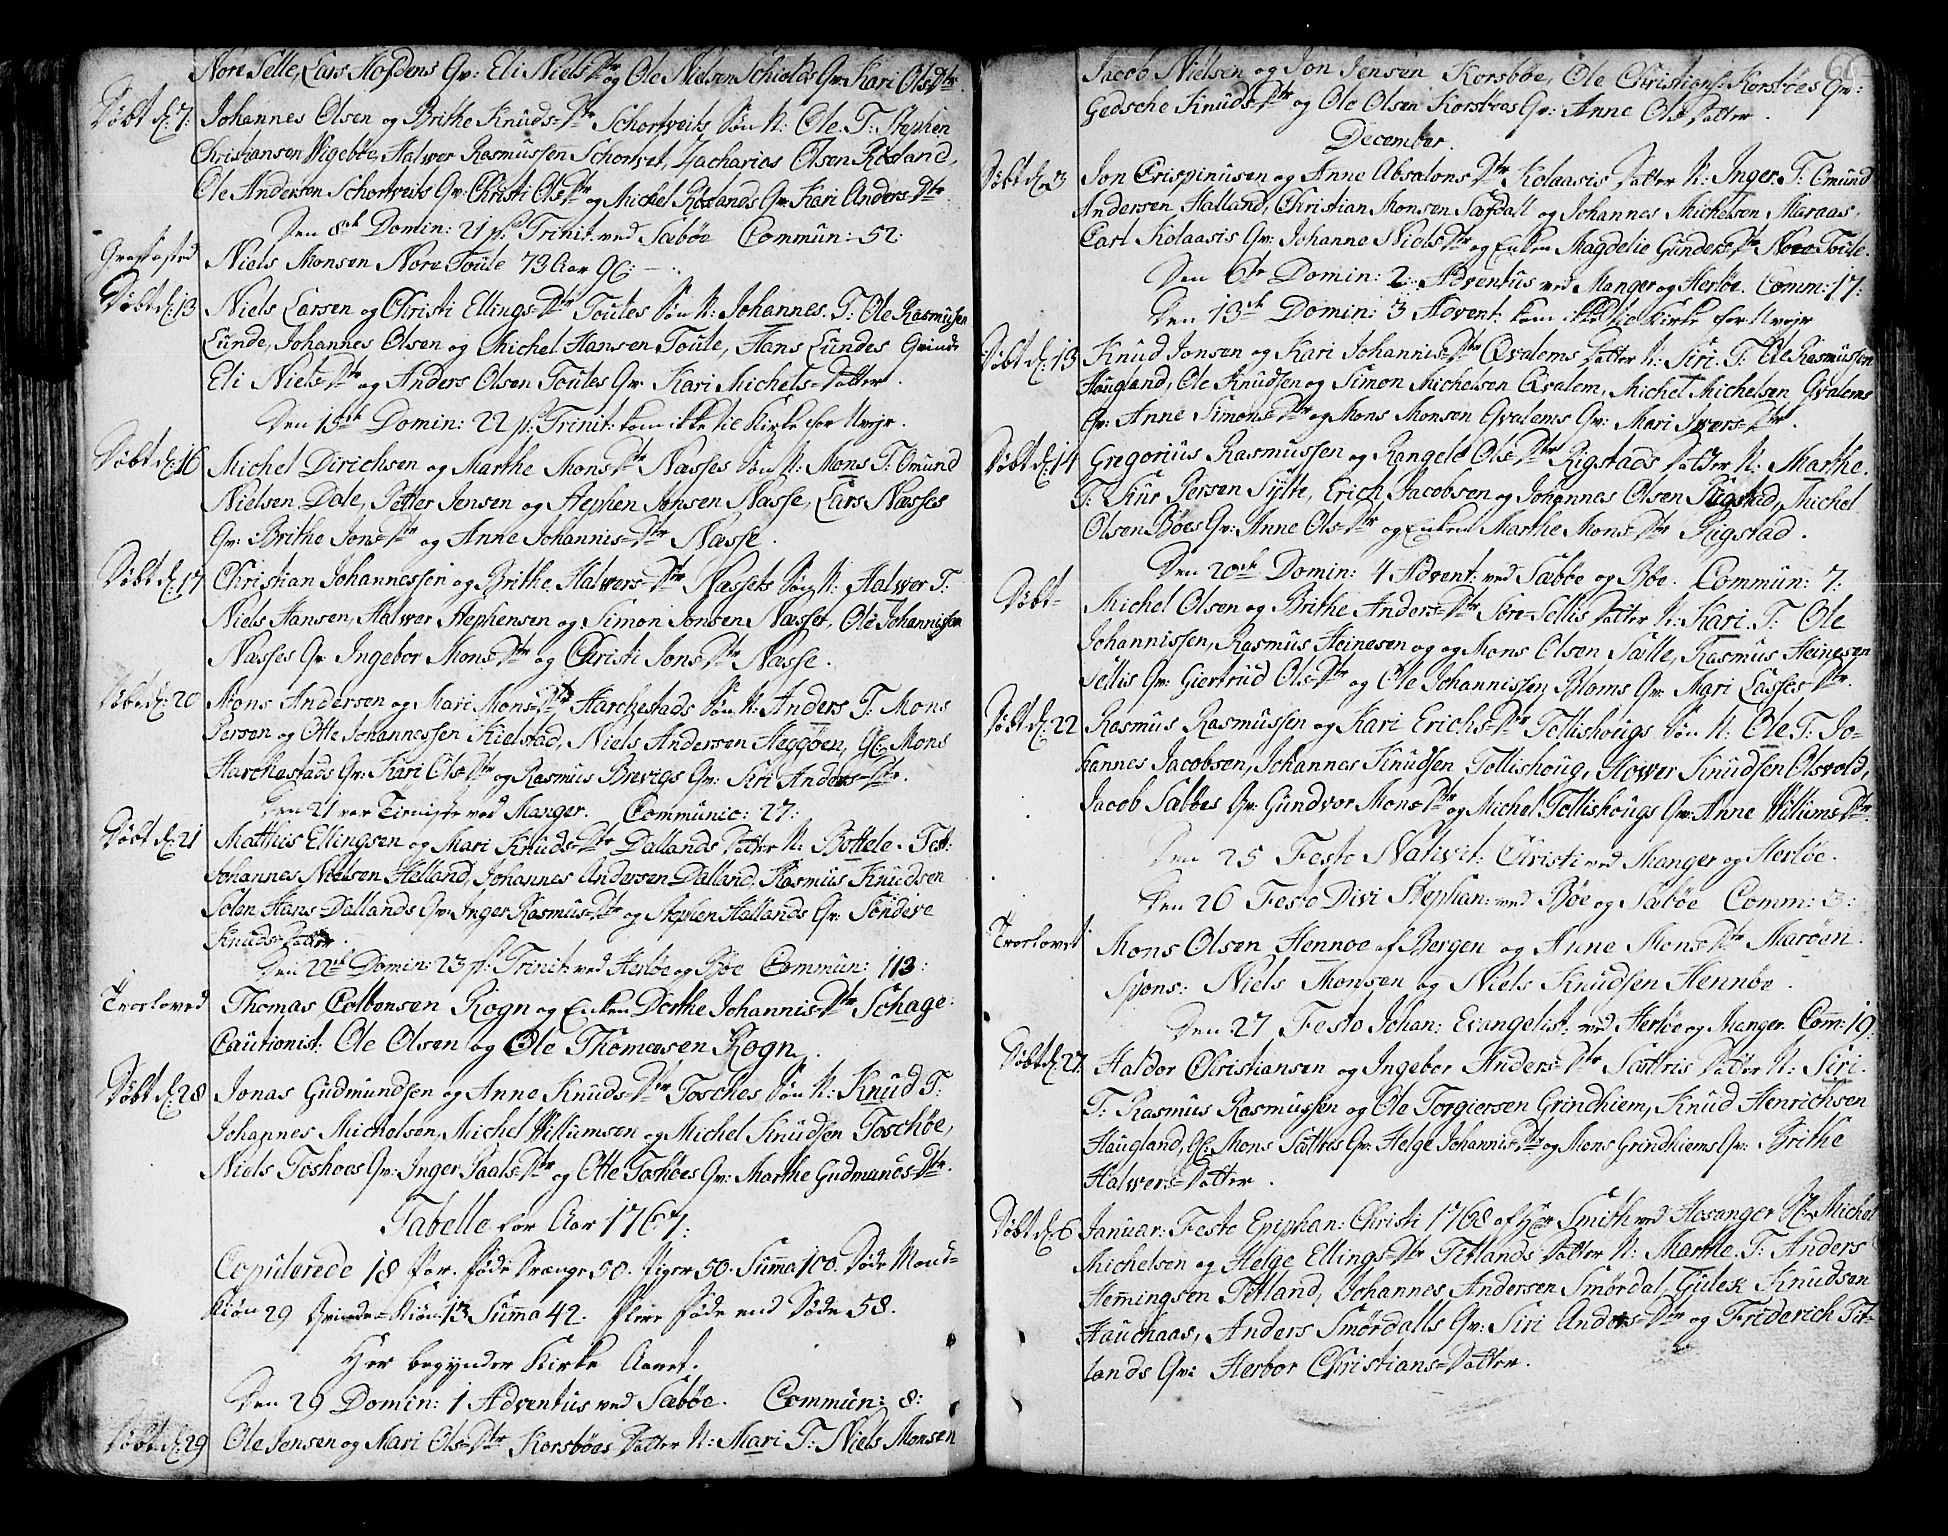 Nore Selle, Lars Hofdens Qv: Eli Niels-Dtr og Ole Nielsen Schiolds Qv: Kari OlsDtr.
Døbt d: 7: Johannes Olsen og Brithe Knuds-Dtr Schortveits Søn N: Ole. T: Stephen
Christiansen Vigebøe, Halvor Rasmussen Schortvet, Zacharias Olsen Røsland,
Ole Andersen Schortveits Qv: Christi Ols-Dtr og Michel Røslands Qv: Kari Anders-Dtr.
Den 8de Domin: 21 p: Trinit: ved Sæbøe Commun: 52:
Grafæsted Niels Monsen Nore Toule 73 Aar 9C: —
Døbt d: 13 Niels Larsen og Christi Ellings-Dtr Toules Søn N: Johannes. T: Ole Rasmusen
Lunde, Johannes Olsen og Michel Hansen Toule, Hans Lundes Qvinde
Eli Niels-Dtr og Anders Olsen Toules Qv: Kari Michels-Datter.
Den 15de Domin: 22 p: Trinit: kom ikke til Kirke for Uvejr.
Døbt d: 16 Michel Dirichsen og Marthe Mons-Dtr Næsses Søn N: Mons T: Omund
Nielsen Dale, Petter Jensen og Stephen Jonsen Næsse, Lars Næsses
Qv: Brithe Jons-Dtr og Anne Johannis-Dtr Næsse.
Døbt d: 17 Christian Johannessen og Brithe Halvers-Dtr Næssets Søn N: Halver T:
Niels Hansen, Halver Stephensen og Simon Jonsen Næsset, Ole Johannissen
Næsses Qv: Ingebor Mons-Dtr og Christi Jons-Dtr Næsse.
Døbt d: 20 Mons Andersen og Mari Mons-Dtr Harchestads Søn N: Anders T: Mons
Persen og Otte Johannessen Kielstad, Niels Andersen Heggøen, Gl: Mons
Harchestads Qv: Kari Ols-Dtr og Rasmus Brevigs Qv: Siri Anders-Dtr.
Den 21 var Tieniste ved Manger. Communic: 27:
Døbt d: 21 Mathis Ellingsen og Mari Knuds-Dtr Dallands Datter N: Bottele. Test:
Johannes Nielsen Helland, Johannes Andersen Dalland, Rasmus Knudsen
Solen Hans Dallands Qv: Inger Rasmus-Dtr og Stephen Hellands Qv: Sondeve
Knuds-Datter.
Den 22de Domin: 23 p: Trinit: ved Herløe og Bøe Commun: 113:
Trorloved Thomas Colbensen Rogn og Enken Dorthe Johannis-Dtr Schage.
Cautionist: Ole Olsen og Ole Thomasen Rogn.
Døbt d: 28 Jonas Gudmundsen og Anne Knuds-Dtr Tosches Søn N: Knud T:
Johannes Michelsen, Michel Villumsen og Michel Knudsen Toschøe,
Niels Toshoes Qv: Inger Paals-Dtr og Otte Toshøes Qv: Marthe Gudmunds-Dtr.
Tabelle for Aar 1767:
Copulerede 18 Par. Føde Drenge 50. Piger 50. Summa 100. Døde Mand-
Kiøn 29 Qvinde-Kiøn 13 Summa 42. Flere føde end Døde 58.
Her begynder Kirke Aaret.
Den 29 Domin: 1 Adventus ved Sæbøe. Commun: 8:
Døbt d: 29 Ole Jensen og Mari Ols-Dtr Korsbøes Datter N: Mari T: Niels Monsen
Jacob Nielsen og Jon Jensen Korsbøe, Ole Christians: Korsbøes Qv:
Gedsche Knuds-Dtr og Ole Olsen Korsbøes Qv: Anne Ols Datter.
December.
Døbt d: 3 Jon Crispinusen og Anne Absalons-Dtr Kolaasis Datter N: Inger. T: Omund
Andersen Halland, Christian Monsen Sæfdall og Johannes Michelsen Maraas,
Carl Kolaasis Qv: Johanne Niels-Dtr og Enken Magdelie Gunders-Dtr Nore Toule.
Den 6te Domin: 2 Adventus ved Manger og Herløe. Comm: 17:
Den 13de Domin: 3 Advent: kom ikke til Kirke for Uvejr
Døbt d: 13 Knud Jonsen og Kari Johannis-Dtr Qvalems Datter N: Siri. T: Ole Rasmussen
Haugland, Ole Knudsen og Simon Michelsen Qvalem, Michel Michelsen Qvalems
Qv: Anne Simons-Dtr og Mons Monsen Qvalems Qv: Mari Ivers-Dtr.
Døbt d: 14 Gregorius Rasmussen og Rangele Ols-Dtr Rigstads Datter N: Marthe.
T: Knr Persen Sylte, Erich Jacobsen og Johannes Olsen Rigstad, Michel
Olsen Bøes Qv: Anne Ols-Dtr og Enken Marthe Mons-Dtr Rigstad.
Den 20de Domin: 4 Advent: ved Sæbøe og Bøe. Commun: 7:
Døbt- Michel Olsen og Brithe Anders-Dtr Søre-Sellis Datter N: Kari. T: Ole
Johannissen, Rasmus Heinesen og og Mons Olsen Sælle, Rasmus Heinesen
Sellis Qv: Giertrud Ols-Dtr og Ole Johannissen Bloms Qv: Mari Lasses-Dtr.
Døbt d: 22 Rasmus Rasmussen og Kari Erichs-Dtr Tollishougs Søn N: Ole T: Jo-
hannes Jacobsen, Johannes Knudsen Tollishoug, Hower Knudsen Olsvold,
Jacob Sæbøes Qv: Gundvor Mons-Dtr og Michel Tollishougs Qv: Anne Villums-Dtr.
Den 25 Festo Nativit: Christi ved Manger og Herløe.
Den 26 Festo Divi Stephan: ved Bøe og Sæbøe Comm: 3:
Trorlovet Mons Olsen Hennøe af Bergen og Anne Mons-Dtr Marøen.
Spons: Niels Monsen og Niels Knudsen Hennøe.
Den 27 Festo Johan: Evangelist: ved Herløe og Manger. Comm: 19:
Døbt d: 27 Haldor Christiansen og Ingebor Anders-Dtr Sættris Datter N: Siri.
T: Rasmus Rasmussen og Ole Torgiersen Grindhiem, Knud Henrichsen
Haugland, Gl: Mons Sættres Qv: Helge Johannis-Dtr og Mons Grindhiems Qv: Brithe
Halvers-Datter.
Døbt d: 6 Januar: Festo Epiphan: Christi 1768 af Hr Smith ved Hosanger Michel
Michelsen og Helge Ellings-Dtr Titlands Datter N: Marthe. T: Anders
Hemmingsen Titland, Johannes Andersen Smørdal, Gulek Knudsen
Hauchaas, Anders Smørdalls Qv: Siri Anders-Dtr og Friderich Tit-
lands Qv: Herbor Christians-Datter.